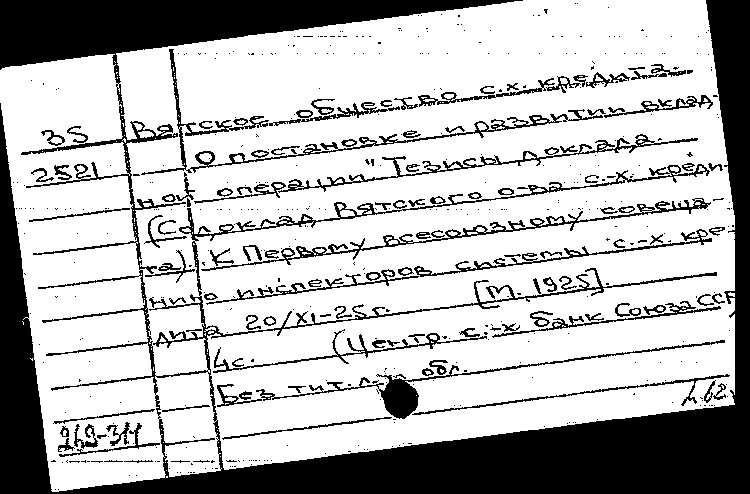 35 Вятское общество с.х. кредита.
2521 „О постановке и развитии вклад-
ной операции" Тезисы доклада.
(Содоклад Вятского о-ва с.-х. креди-
та). К Первому всесоюзному совеща-
нию инспекторов системы с.-х. кре-
дита 20/XI-25г. [М, 1925].
4с. (Центр. с.-х банк Союза ССР)
Без тит. л. и обл.
262.